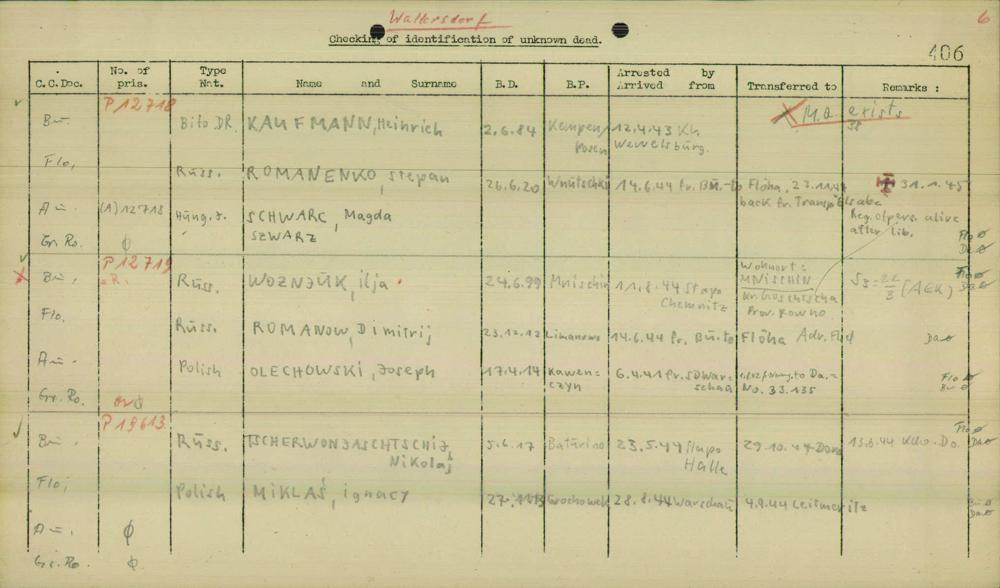 Waltersdorf
6
Checking of identification of unknown dead.
406
C.C.Doc. No. of pris. Type Nat. Name and Surname B.D. B.P. Arrested by Arrived from Transferred to Remarks :
P 12718
X M.D. exists
38
Bu. Bifo DR. KAUFMANN, Heinrich 2.6.84 Kempen/ Posen 12.4.43 KL Wewelsburg.
Flo, Russ. ROMANENKO, Stepan 26.6.20 14.6.44 fr. Bu.-to Flöha, 23.11.44 back fr. Transp. 31.1.45
Au-. (A) 12718 Hung. J. SCHWARC, Magda
SZWARZ
Reg. of pers. alive after lib.
Gr. Ro. ϕ
Flo ø
Da ø
P 12719
Bu. Russ. WOZNJUK, ilja 24.6.99 Mnischin 11.8.44 Stapo Chemnitz Wohnort: MNISCHIN Prov. Rowno
Flo. Russ. ROMANOW, Dimitrij 23.12.12 Limanowo 14.6.44 fr. Bu.-to Flöha
Da ø
Au-. Polish OLECHOWSKI, Joseph 17.4.14 Kawen-czyn 6.4.41 fr. Warschau to Da.= No. 33.135
Flo ø
Bu ø
Gr. Ro. ϕ
P 19613
Bu. Russ. TSCHERWONJASCHTSCHIJ, Nikolaj 5.6.17 Baturino 23.5.44 Stapo Halle 29.10.44 Dora
Flo ø
Da ø
Flo, Polish MIKLAŚ, ignacy Grochowek 28.8.44 Warschau 4.9.44 Leitmeritz
Bu ø
Da ø
Au-. ϕ
Gr. Ro. ϕ